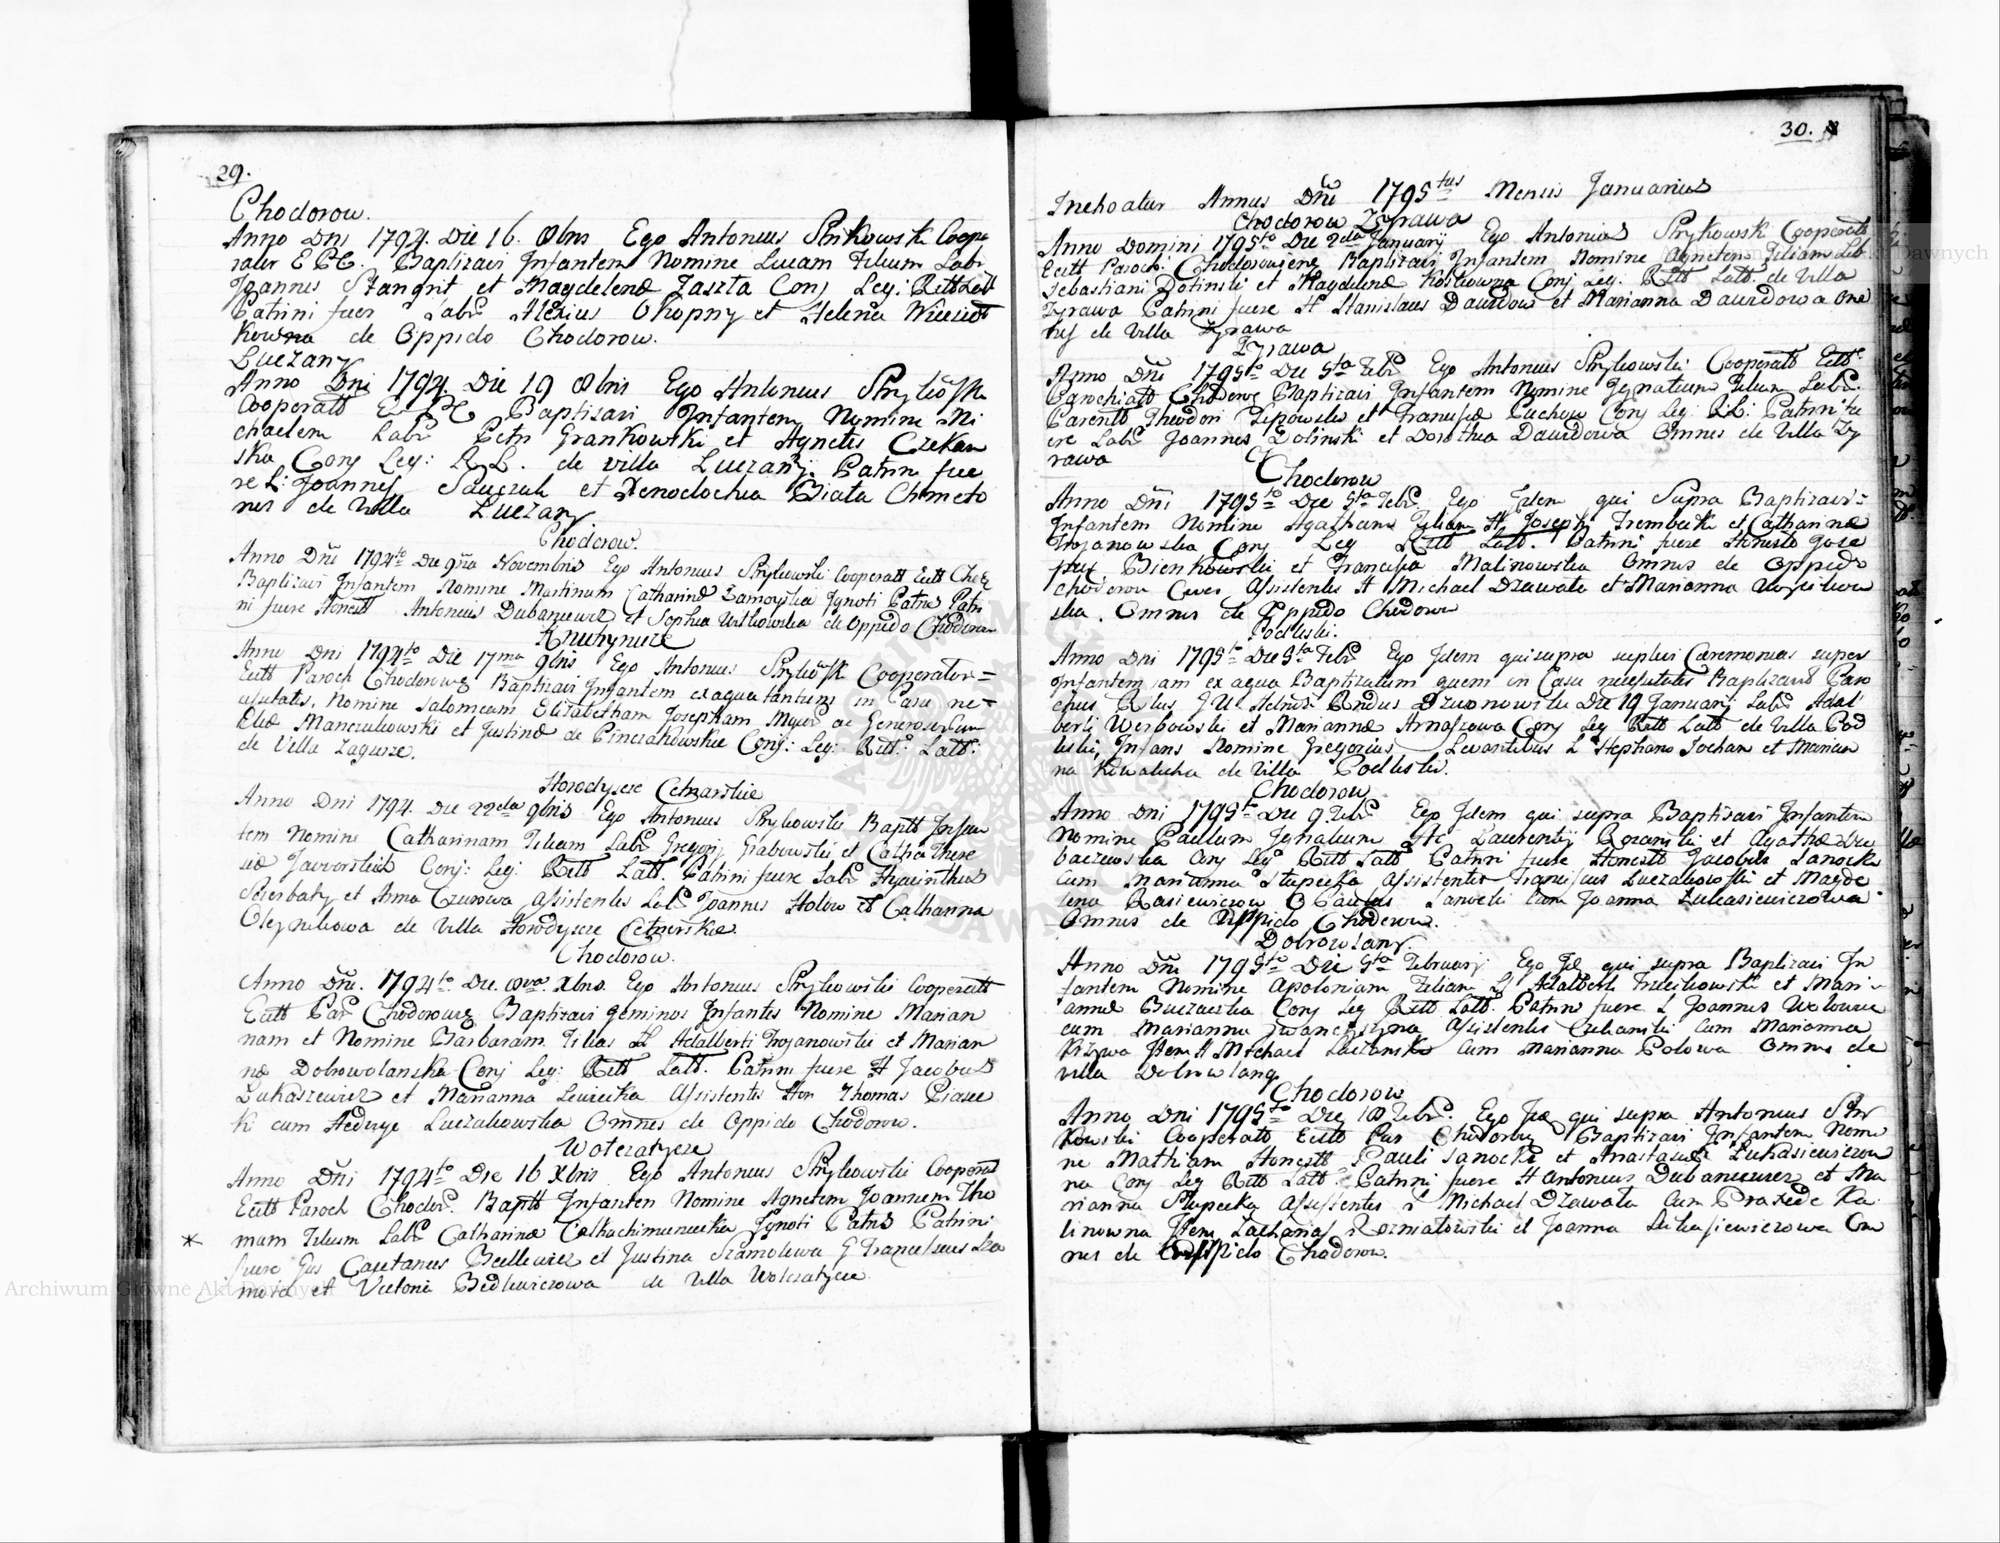 29.
Chodorow.
Anno Dni 1794. Die 16. 8bris Ego Antonius Strikowski Coope
rator E PC. Baptizavi Infantem Nomine Lucam Filium Labr
Joannis Stangrit et Magdelenæ Zaszta Conj Leg: Ritt Latt
Patrini fuer Labr Alexius Okopny et Helena
Kowna de Oppido Chodorow.
Luczany
Anno Dni 1794 Die 19 8bris Ego Antonius
Cooperatt E PC Baptizavi Infantem Nomine Mi
chaelem Labr Petri Grankowski et Agnetis Czekan
ska Conj Leg: R L. de villa Luczany. Patrini fue
re L: Joannes Sauczuk et Xenodochia Biata Chmeto
nes de Villa Luczany
Chodorow.
Anno Dni 1794to Die 9na Novembris Ego Antonius Strykowski Cooperatt Eccll Chod
Baptizavi Infantem Nomine Martinum Catharinæ Zamoyska Ignoti Patris Patri
ni fuere Honestt Antonius Dubaniewicz et Sophia Ustkowska de Oppido Chodorow
Anno Dni 1794to Die 17ma 9bris Ego Antonius Cooperator
Eccll Paroch Chodorows Baptizavi Infantem ex aqua tantum in Casu ne=
cesitatis, Nomine Salomeam Elizabetham Josepham Mgcor ac Generosorum
Eliæ Manczukowski et Justinæ de Pinczakowskie Conj: Leg: Ritt: Latt:
de Villa Zagurze.
Horodyszcze Cetnarskie
Anno Dni 1794. Die 22da 9bris Ego Antonius Strykowski Baptt Infan
tem Nomine Catharinam Filiam Labr Gregorj Grabowski et Catha There
siæ Jaworskie Conj: Leg: Ritt Latt. Patrini fuere Labr Hyacinthus
Szerbaty et Anna Czurowa Assistentes Labr Joannes Holow et Catharina
Oleynikowa de Villa Horodyszcze Cetnerskie.
Chodorow.
Anno Dni. 1794to. Die. 8va. Xbris. Ego Antonius Strykowski Cooperatt
Eccll Par Chodorows Baptizavi geminos Infantes Nomine Marian
nam et Nomine Barbaram Filias H Adalberti Trojanowski et Marian
næ Dobrowolanska Conj Leg: Ritt Latt. Patrini fuere H Jacobus
Lukaszewicz et Marianna Lewicka Assistentes Hon Thomas Piasec
ki cum Hedvige Luczakowska Omnes de Oppido Chodorow.
Wolczatycze
Anno Dni 1794to Die 16 Xbris Ego Antonius Strykowski Cooperatt
Eccll Paroch Chodor. Baptt Infantem Nomine Agnetem Joannem Tho
mam Filium Labr Catharinæ Ignoti Patris Patrini
* fuere Gus Cajetanus Bedlewicz et Justina Szamolewa G Franciscus Sza
mota et Victoria Bedlewiczowa de Villa Wolczatycze
30.
Inchoatur Annus Dni 1795tus Mensis Januarius
Chodorow Zyrawa
Anno Domini 1795to Die 2da Januarij Ego Antonius Strykowski Cooperatt
Eccll Paroch: Chodoroviens Baptizavi Infantem Nomine Agnetem Filiam Lab
Sebastiani Dolinski et Magdelenæ Koskowna Conj Leg: Ritt Latt. de Villa
Zyrawa Patrini fuere H Stanislaus Dawidow et Marianna Dawidowa Om
nes de Villa Zyrawa
Zyrawa
Anno Dni 1795to Die 5ta Febr Ego Antonius Strykowski Cooperatt Eccll
Parochiatt Chodorovs Baptizavi Infantem Nomine Ignatium Filium Labr.
Parentt Theodori et Franciscæ Conj Leg: R L: Patrini fu
ere Labr Joannes Dolinski et Dorothea Dawidowa Omnes de Villa Zy
rawa
Chodorow
Anno Dni 1795to Die 5ta Febr Ego Idem qui Supra Baptizavi:
Infantem Nomine Agatham Filiam H Josephi Trembecki et Catharinæ
Trojanowska Conj Leg Ritt Latt. Patrini fuere Honestt Jose
phus Bienkowski et Francisca Malinowska Omnes de Oppido
Chodorow Cives Assistentes H Michael Dzawala et Marianna
ska. Omnes de Oppido Chodorow
Podliski.
Anno Dni 1795to Die 5ta Febr Ego Idem qui supra suplevi Cæremonias super
Infantem jam ex aqua Baptizatum quem in Casu necesitatis Baptizavit Paro
chus Ritus Die 19 Januarij Labr Adal
berti Werbowski et Mariannæ Conj Leg Ritt Latt de Villa Pod
liski, Infans Nomine Gregorius Levantibus L Stephano Sochan et Marian
na Kowalicha de Villa Podliski.
Chodorow
Anno Dni 1795to Die 9 Febr Ego Idem qui supra Baptizavi Infantem
Nomine Paulum Ignatium Laurentij et Agathæ
Conj Leg Ritt Latt Patrini fuere Honestt Jacobus Sanocki
cum Marianna Stupecka Assistentes Franciscus Luczakowski et Magde
lena Basiewiczow Paulus Sanocki cum Joanna Lukasiewiczowa
Omnes de Oppido Chodorow.
Dobrowlany.
Anno Dni 1795to Die 9ta Februarj Ego Id qui supra Baptizavi In
fantem Nomine Apoloniam Filiam L Adalberti et Mari
annæ Buczacska Conj Leg Ritt Latt. Patrini fuere L Joannes
cum Marianna Assistentes cum Marianna
Krzywa Item H Michael cum Marianna Polowa Omnes de
villa Dobrowlany
Chodorow
Anno Dni 1795to Die 18 Febr. Ego Id qui supra Antonius Stry
kowski Cooperatt Eccll Par Chodorovs Baptizavi Infantem Nomi
ne Mathiam Honestt Pauli Sanocki et Anastasiæ Lukasiewiczow
na Conj Leg Ritt Latt. Patrini fuere H Antonius Dubaniewicz et Ma
rianna Stupecka Assistentes Michael Dzawala cum Praxede Ka
linowna Item Zacharias Rozniatowski et Joanna Lukasiewiczowa Om
nes de Oppido Chodorow.
Archiwum Główne Akt Dawnych